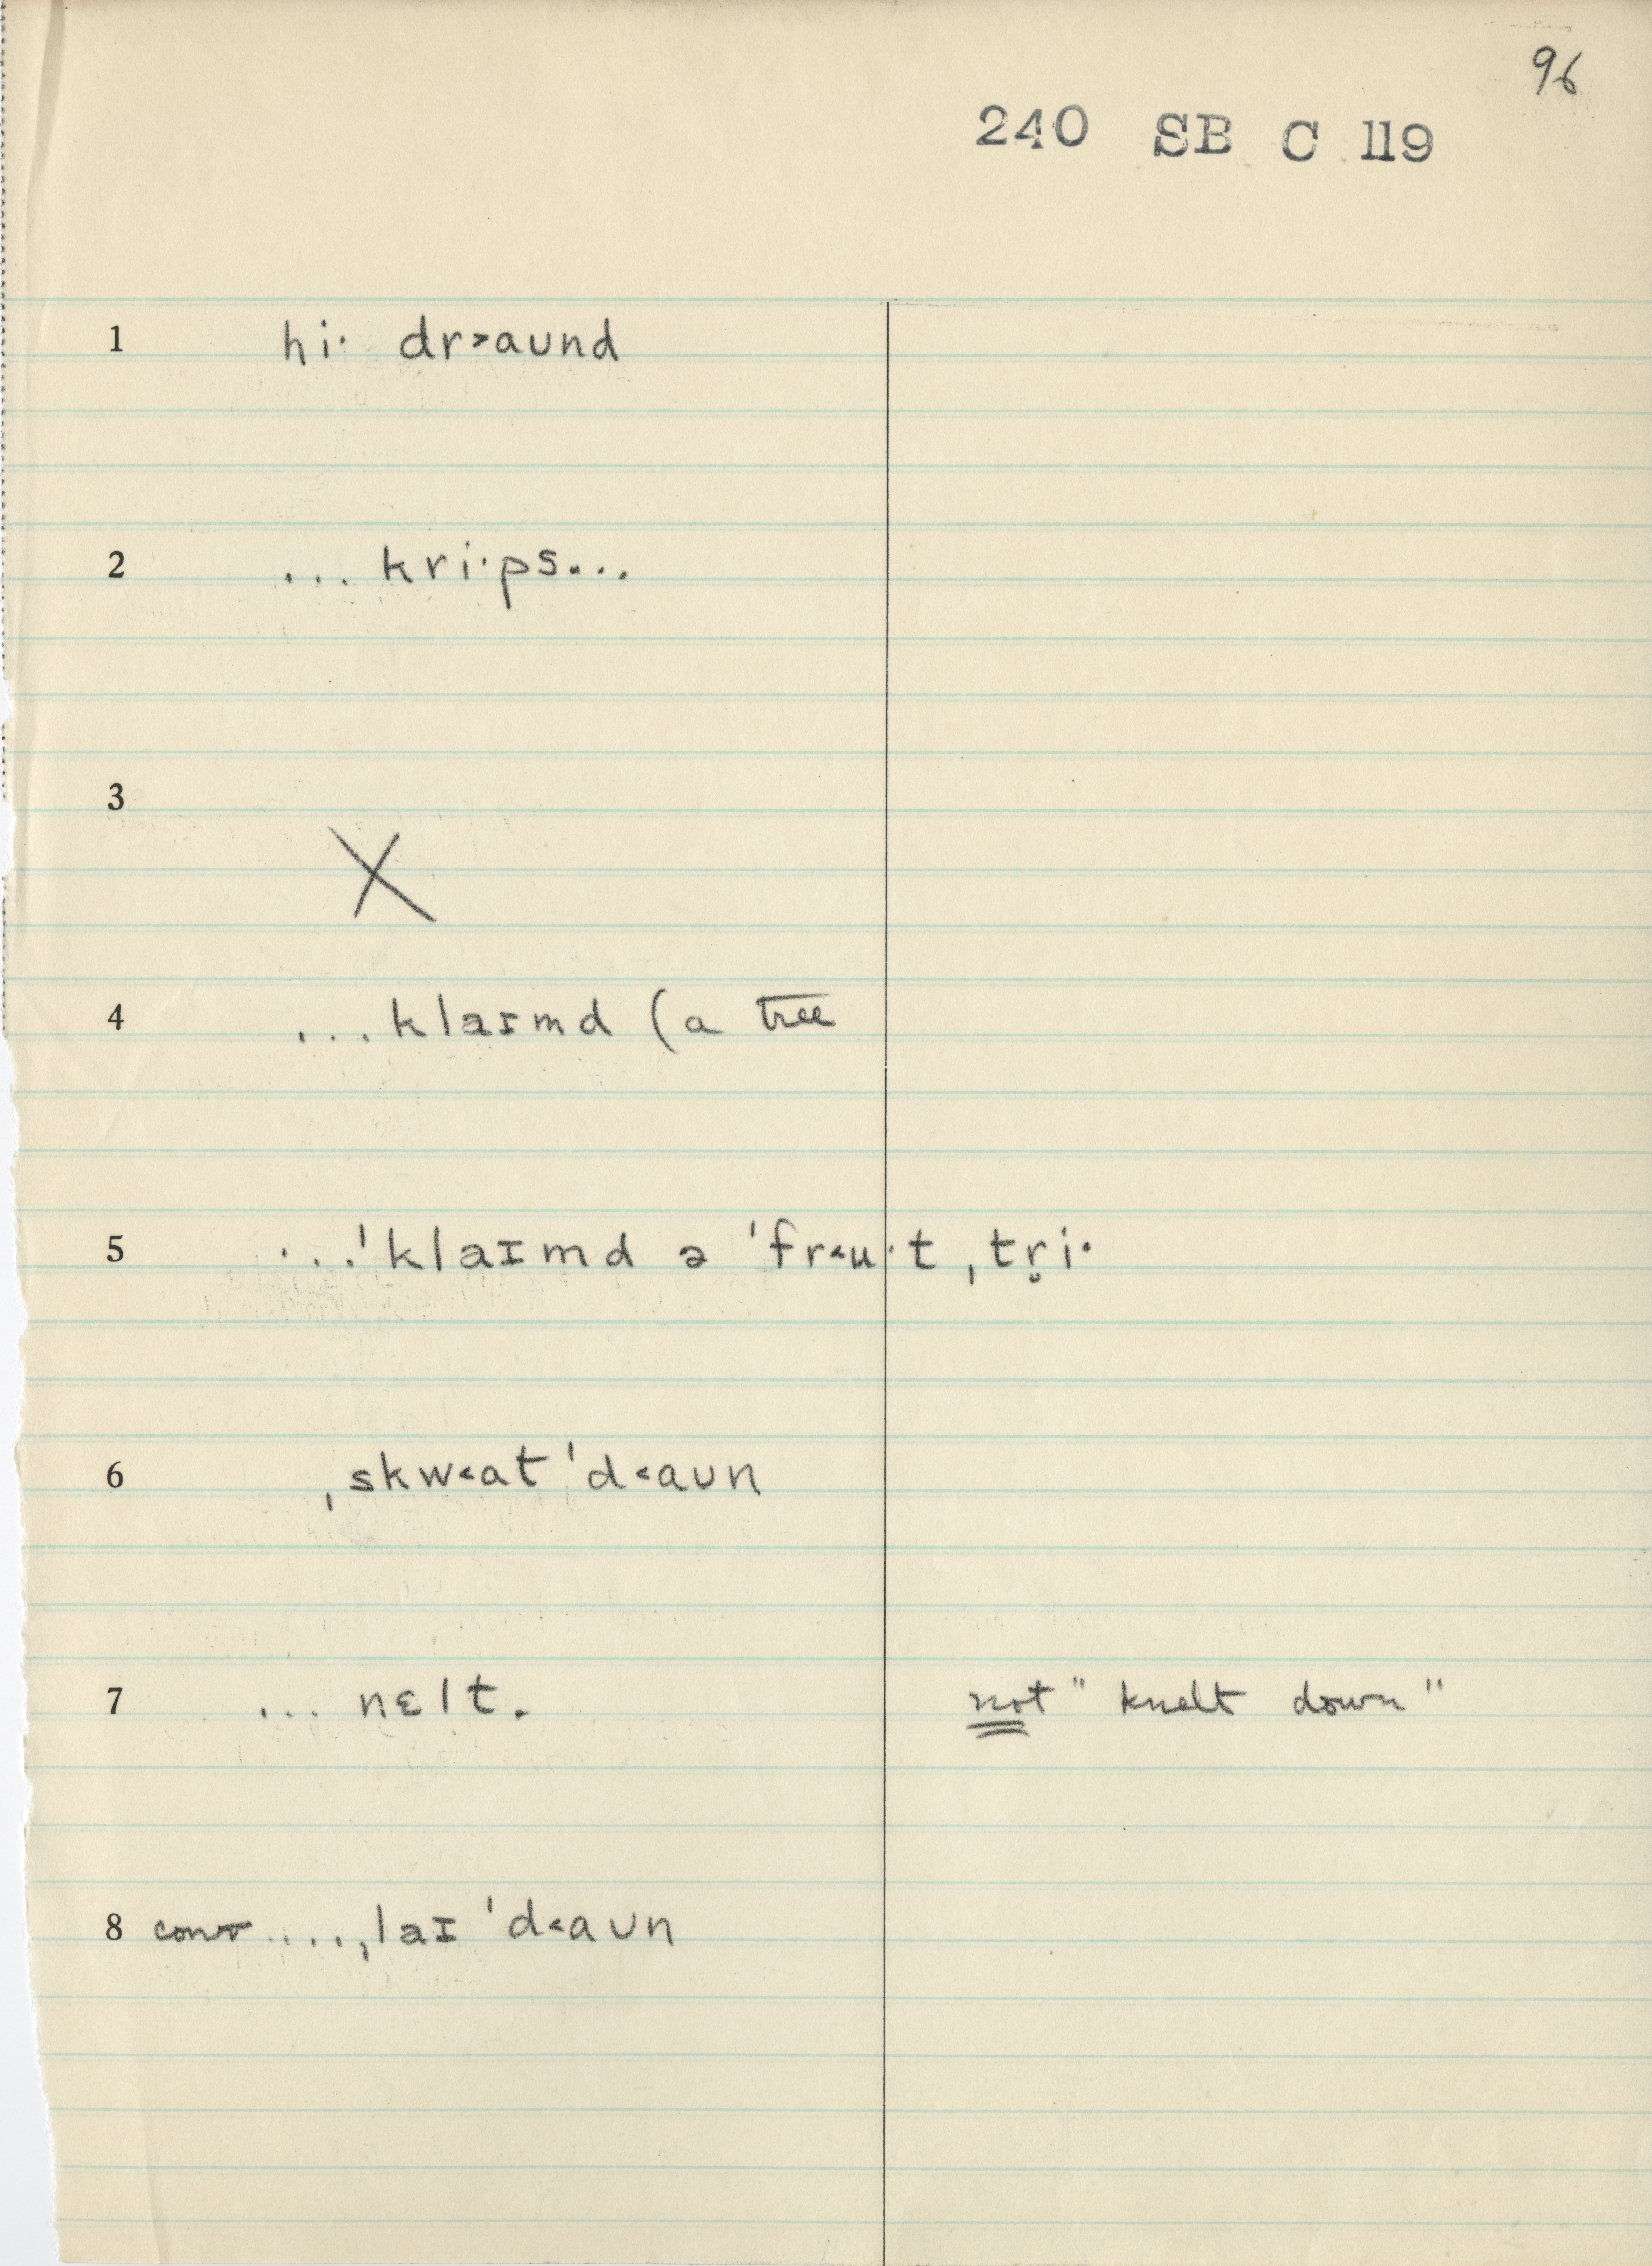 96
240 SB C 119
1 hi· dr˃aund
2 ... kri·ps...
3 X
4 ...klaɪmd (a tree
5 ...ˈklaɪmd ə ˈfr˂u·t ˌtr̥i·
6 ˌskw˂at ˈd˂aʊn
7 ... nɛlt. not "knelt down"
8 conv ....ˌlaɪ ˈd˂aʊn